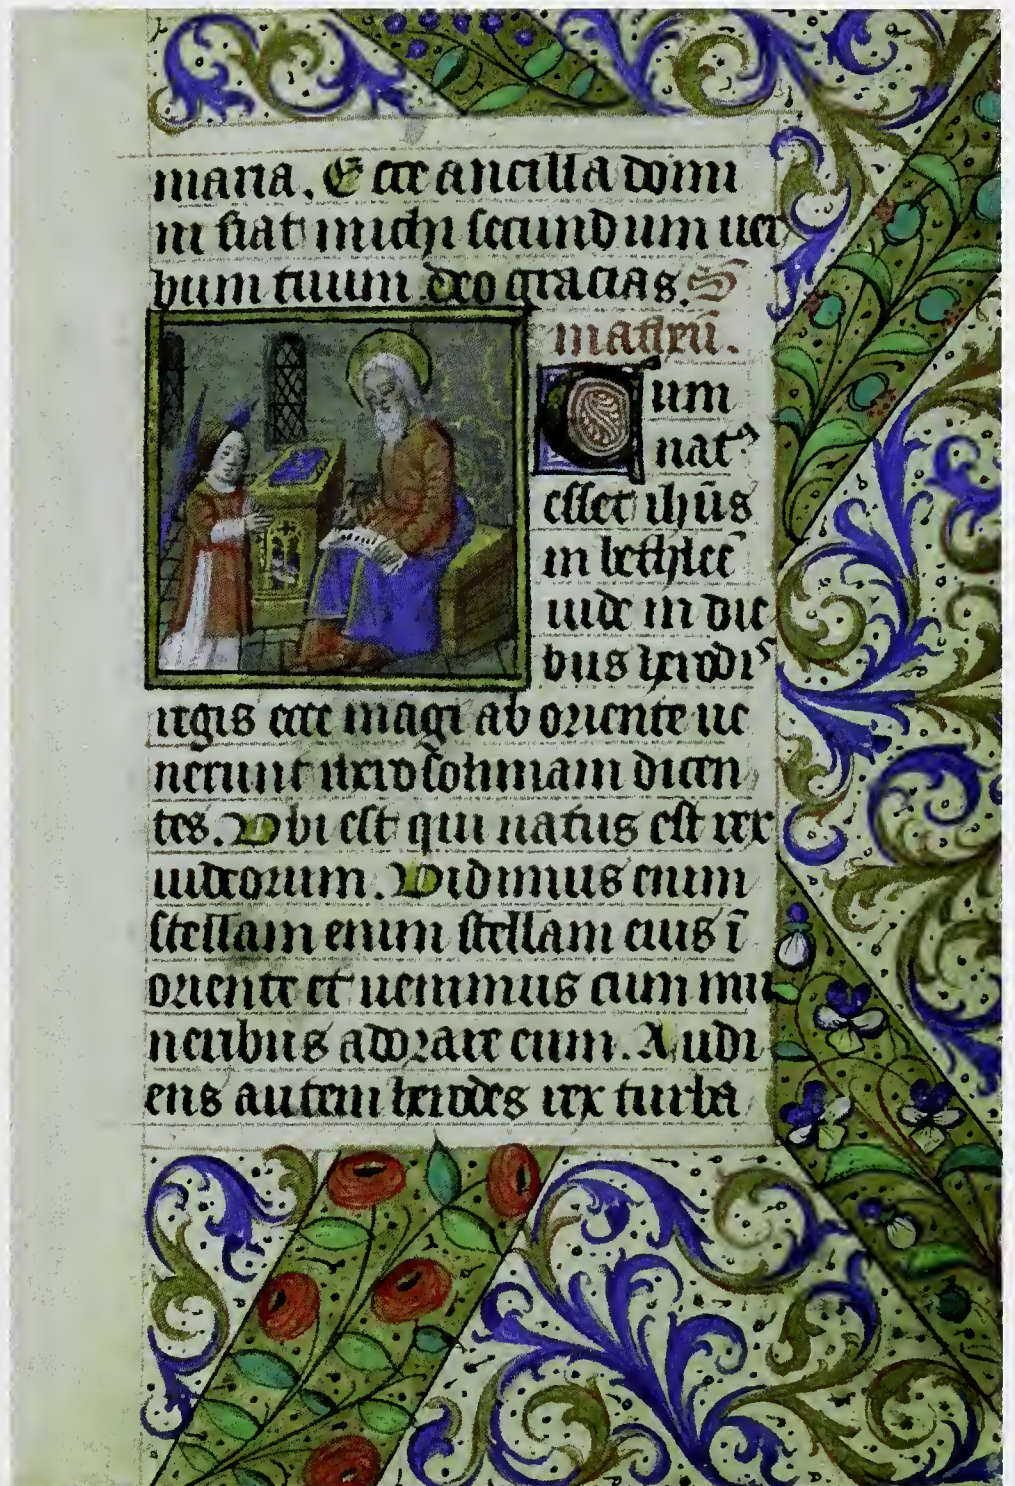 maria. Ecce ancilla domi
ni fiat michi secundum uer
bum tuum deo gracias. S
matheū.
Cum
natꝰ
esset ihūs
in bethleē
iude in die
bus herodis
regis ecce magi ab oriente ue
nerunt iherosolimam dicen
tes. Vbi est qui natus est rex
iudeorum. Vidimus enim
stellam enim stellam eius ī
oriente et uenimus cum mu
neribus adorare eum. Audi
ens autem herodes rex turba